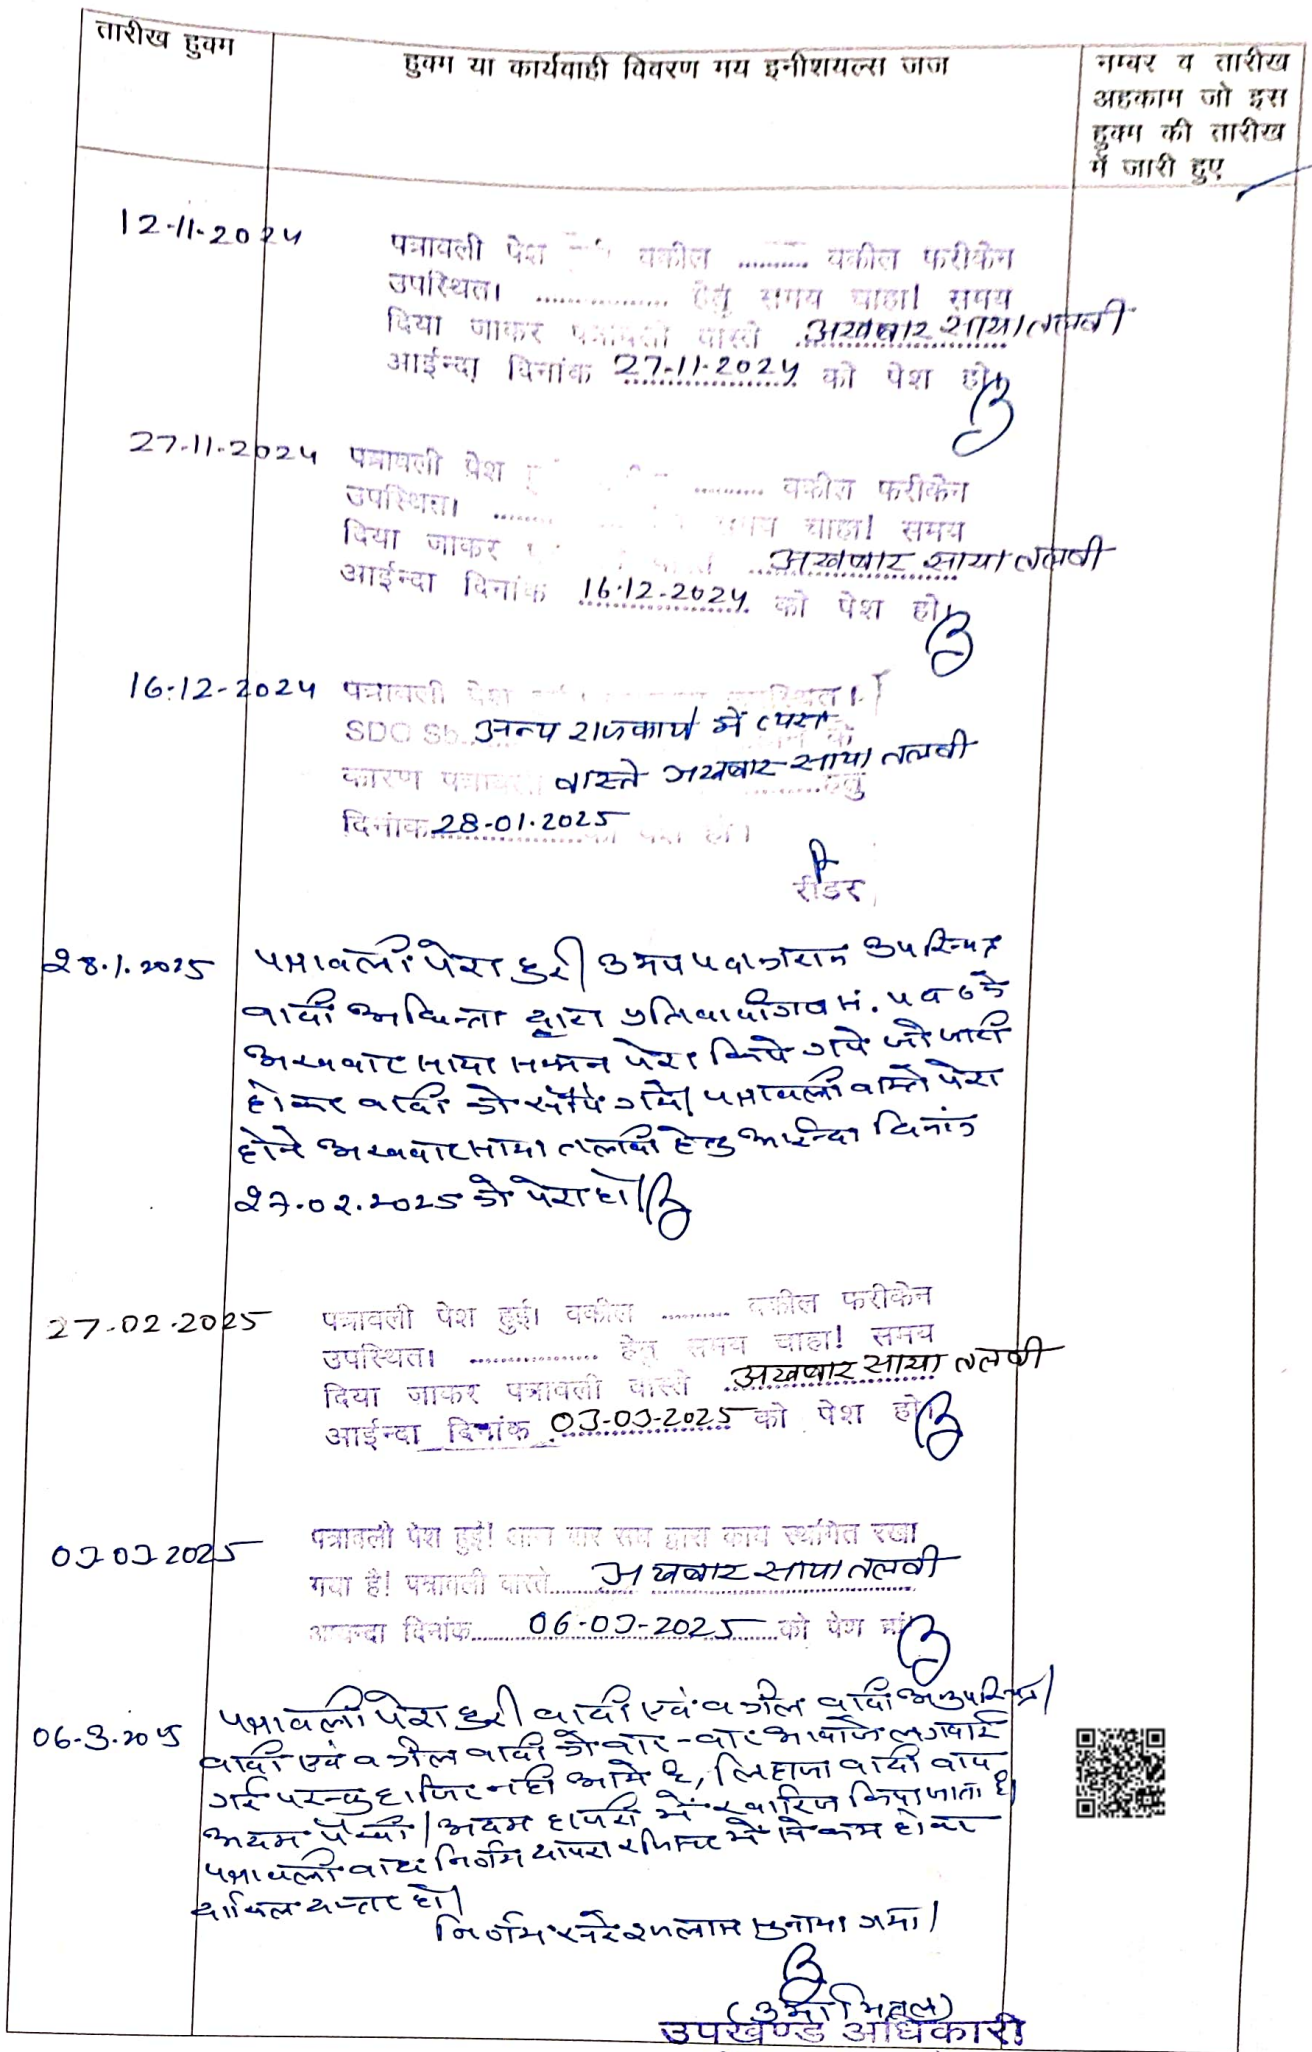 तारीख हुक्म
हुक्म या कार्यवाही विवरण मय इनीशयल्स जज
नम्बर व तारीख
अहकाम जो इस
हुक्म की तारीख
में जारी हुए
12-11-2024
पत्रावली पेश वकील .......... वकील फरीकेन
उपस्थित। .................. हेतु समय चाहा! समय
दिया जाकर पत्रावली वास्ते अखबार साया तलबी
आईन्दा दिनांक 27-11-2024 को पेश हो।
27-11-2024
पत्रावली पेश .......... वकील फरीकेन
उपस्थित। ........ समय चाहा! समय
दिया जाकर अखबार साया तलबी
आईन्दा दिनांक 16-12-2024 को पेश हो।
16-12-2024
पत्रावली पेश
SDO Sb. अन्य राजकार्य में व्यस्त के
कारण वास्ते अखबार साया तलबी हेतु
दिनांक 28-01-2025 को पेश हो।
रीडर
28.1.2025
पत्रावली पेश हुई। उभय पक्षकारान उपस्थित
वादी अधिवक्ता द्वारा प्रतिवादीगण सं. 5 व 6 के
अखबार साया सम्मन पेश किये गये जो जारी
होकर वादी को सौंपे गये। पत्रावली वास्ते पेश
होने अखबार साया तलबी हेतु आईन्दा दिनांक
27.02.2025 को पेश हो।
27-02-2025
पत्रावली पेश हुई। वकील .......... वकील फरीकेन
उपस्थित। .................. हेतु समय चाहा! समय
दिया जाकर पत्रावली वास्ते अखबार साया तलबी
आईन्दा दिनांक 03-03-2025 को पेश हो।
03-03-2025
पत्रावली पेश हुई! आज बार संघ द्वारा कार्य स्थगित रखा
गया है! पत्रावली वास्ते अखबार साया तलबी
आयन्दा दिनांक 06-03-2025 को पेश हो
06-3-2025
पत्रावली पेश हुई। वादी एवं वकील वादी अनुपस्थित।
वादी एवं वकील वादी को बार-बार आवाजे लगवाई
गई परन्तु हाजिर नहीं आये है, लिहाजा वादी वाद
अदम पैरवी / अदम हाजरी में खारिज किया जाता है।
पत्रावली बाद निर्णय दायरा रजिस्टर में से कम होकर
दाखिल दफ्तर हो।
निर्णय सरे इजलास सुनाया गया।
(उमा मित्तल)
उपखण्ड अधिकारी